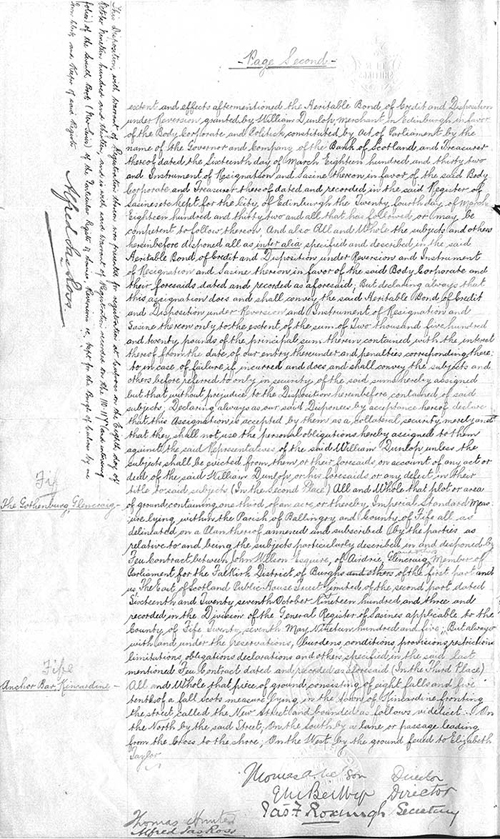 - Page Second -
extent and effects aftermentioned the Heritable Bond of Credit and Disposition
under Reversion granted by William Dunlop, merchant in Edinburgh, in favor
of the Body Corporate and Politick, constituted by Act of Parliament by the
name of the Governor and Company of the Bank of Scotland, and Treasurer
thereof dated the Sixteenth day of March Eighteen hundred and thirty two
and Instrument of Resignation and Sasine thereon in favor of the said Body
Corporate and Treasurer thereof dated and recorded in the said Register of
Sasines kept for the City of Edinburgh the Twenty fourth day of March
Eighteen hundred and thirty two and all that has followed or may be
competent to follow thereon, And also All and Whole the subjects and others
hereinbefore disponed all as inter alia specified and described in the said
Heritable Bond of Credit and Disposition under Reversion and Instrument
of Resignation and Sasine thereon in favor of the said Body Corporate and
their foresaids dated and recorded as aforesaid; But declaring always that
this assignation does and shall convey the said Heritable Bond of Credit
and Disposition under Reversion and Instrument of Resignation and
Sasine thereon only to the extent of the sum of Two thousand five hundred
and twenty pounds of the principal sum therein contained, with the interest
thereof from the date of our entry thereunder and penalties corresponding there-
to in case of failure if incurred and does and shall convey the subjects and
others before referred to only in security of the said sums hereby assigned
but that without prejudice to the Disposition hereinbefore contained of said
subjects; Declaring always as our said Disponees by acceptance hereof declare
that this Assignation is accepted by them as a collateral security merely and
that they shall not use the personal obligations hereby assigned to them
against the said Representatives of the said William Dunlop unless the
subjects shall be evicted from them or their foresaids on account of any act or
deed of the said William Dunlop or his foresaids or any defect in their
title to said subjects (In the Second Place) All and Whole that plot or area
of ground containing one third of an acre, or thereby, Imperial Standard Mea-
sure lying within the Parish of Ballingry and County of Fife all as
delineated on a Plan thereof annexed and subscribed by the parties as
relative to and being the subjects particularly described in and disponed by
Feu Contract between John Wilson Esquire, of Airdrie, Glencraig Member of
Parliament for the Falkirk District of Burghs and others of the first part and
us The East of Scotland Public House Trust Limited of the second part dated
Sixteenth and Twenty seventh October Nineteen hundred and three and
recorded in the Division of the General Register of Sasines applicable to the
County of Fife Twenty seventh May Nineteen hundred and five; But always
with and under the reservations, burdens conditions provisions restrictions
limitations, obligations declarations and others specified in the said last
mentioned Feu Contract dated and recorded as aforesaid (In the Third Place)
All and Whole that piece of ground consisting of eight falls and five
tenths of a fall Scots measure lying in the town of Kincardine fronting
the street called the New Street and bounded as follows, videlicet:- On
the North by the said Street, On the South by a lane or passage leading
from the Close to the Shore; On the West by the ground feued to Elizabeth
Taylor
Fife
The Gothenburg, Glencraig -
Fife
Anchor Bar, Kincardine -
Alfred Jas Ross
Director
Director
Jas F. Roxburgh Secretary
Thomas Hunter
Alfred Jas Ross